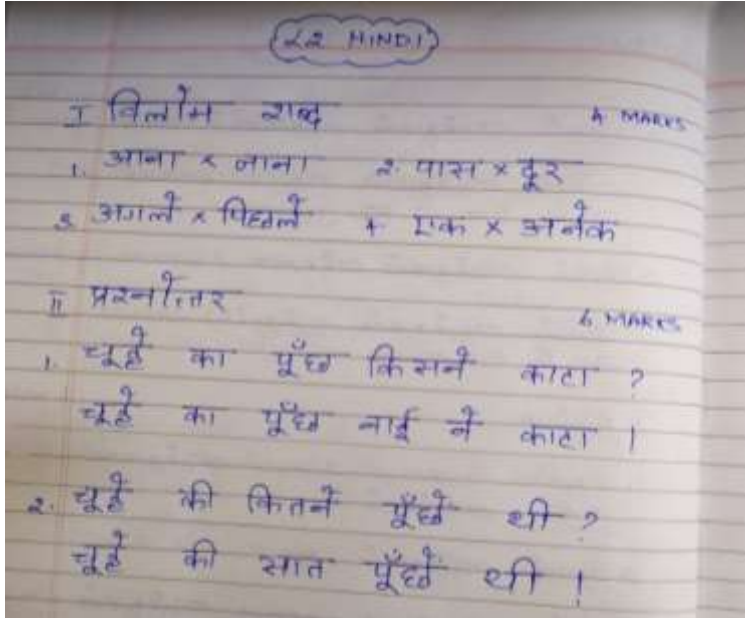 22 HINDI
I विलोम शब्द 4 MARKS
1. आना × जाना 2. पास × दूर
3. अगले × पिछले 4 एक × अनेक
II प्रश्नोत्तर 6 MARKS
1. चूहे का पूँछ किसने काटा ?
चूहे का पूँछ नाई ने काटा ।
2. चूहे की कितने पूँछें थी ?
चूहे की सात पूँछें थी ।